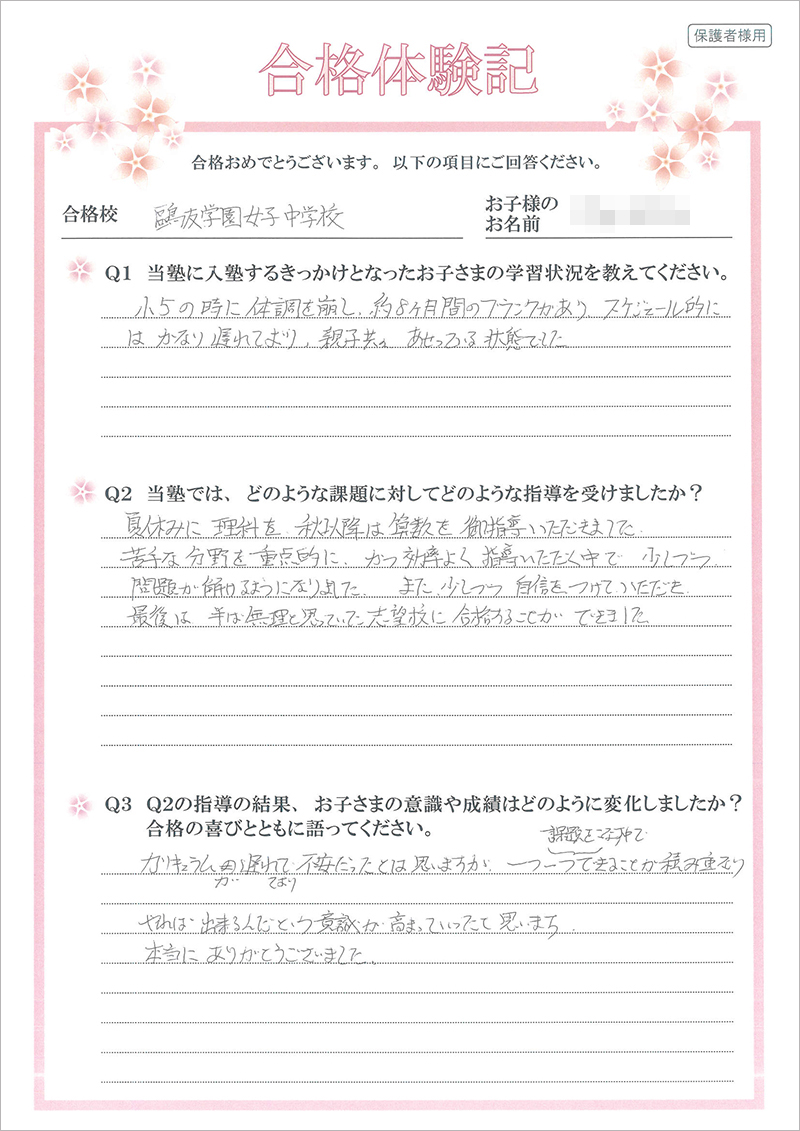 保護者様用
合格体験記
合格おめでとうございます。以下の項目にご回答ください。
合格校 鷗友学園女子中学校
お子様の
お名前
Q1 当塾に入塾するきっかけとなったお子さまの学習状況を教えてください。
小5の時に体調を崩し、約8ヶ月間のブランクがあり スケジュール的に
は かなり遅れており、親子共々 あせっている 状態でした
Q2 当塾では、どのような課題に対してどのような指導を受けましたか？
夏休みに 理科を、秋以降は 算数を 御指導いただきました
苦手な 分野を重点的に、かつ効率よく 指導いただく中で 少しづつ
問題が解けるようになりました。また、少しづつ 自信をつけていただき、
最後は 半ば無理と思っていた志望校に 合格することが できました
Q3 Q2の指導の結果、お子さまの意識や成績はどのように変化しましたか？
合格の喜びとともに語ってください。
課題をこなす中で
カリキュラム 遅れて 不安だったとは 思いますが、一つ一つできることが 積み重なり
が ており
やれば 出来るんだという 意識が 高まっていったと 思います
本当に ありがとうございました。